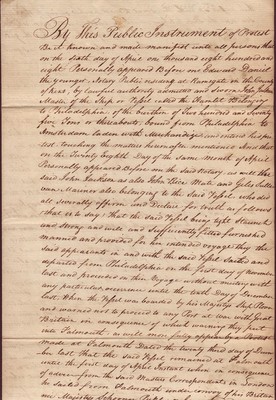 By This Public Instrument of Protest
Be it known and made manifest unto all persons that
on the sixth day of April one thousand eight hundred and
eight Personally appeared Before me Edward Daniel
the younger Notary Public residing at Ramsgate in the County
of Kent, by lawful authority admitted and sworn John Jackson
Master of the Ship or Vessel called the Hamlet Belonging
to Philadelphia of the Burthen of Two hundred and Seventy
five Tons or thereabouts Bound from Philadelphia to
Amsterdam Laden with Merchandize and entered his pro
test touching the matters hereinafter mentioned And that
on the Twenty Eighth Day of the same Month of April
Personally appeared Before me the said Notary, as well the
said John Jackson as also John Mate and Giles
Mariner also belonging to the said Vessel, who did
all Severally affirm and Declare for truth as follows
that is to say that the said Vessel being tight Staunch
and Strong and well and Sufficiently fitted furnished
manned and provided for her intended voyage they the
said appearants in and with the said Vessel Sailed and
departed from Philadelphia on the first day of November
last and proceeded on the Voyage without meeting with
any particular occurrence until the tenth day of December
last When the Vessel was boarded by his Majesty's
and warned not to proceed to any Port at War with Great
Britain in consequence of which warning they put
into Falmouth as will more fully appear by a Protest
made at Falmouth Dated the twenty third day of Decem
ber last that the said Vessel remained at Falmouth
until the first day of April Instant when in consequence
of advice from the said Masters Correspondents in London
he sailed from Falmouth under convoy of his Britan
nic Majesty's Schooner